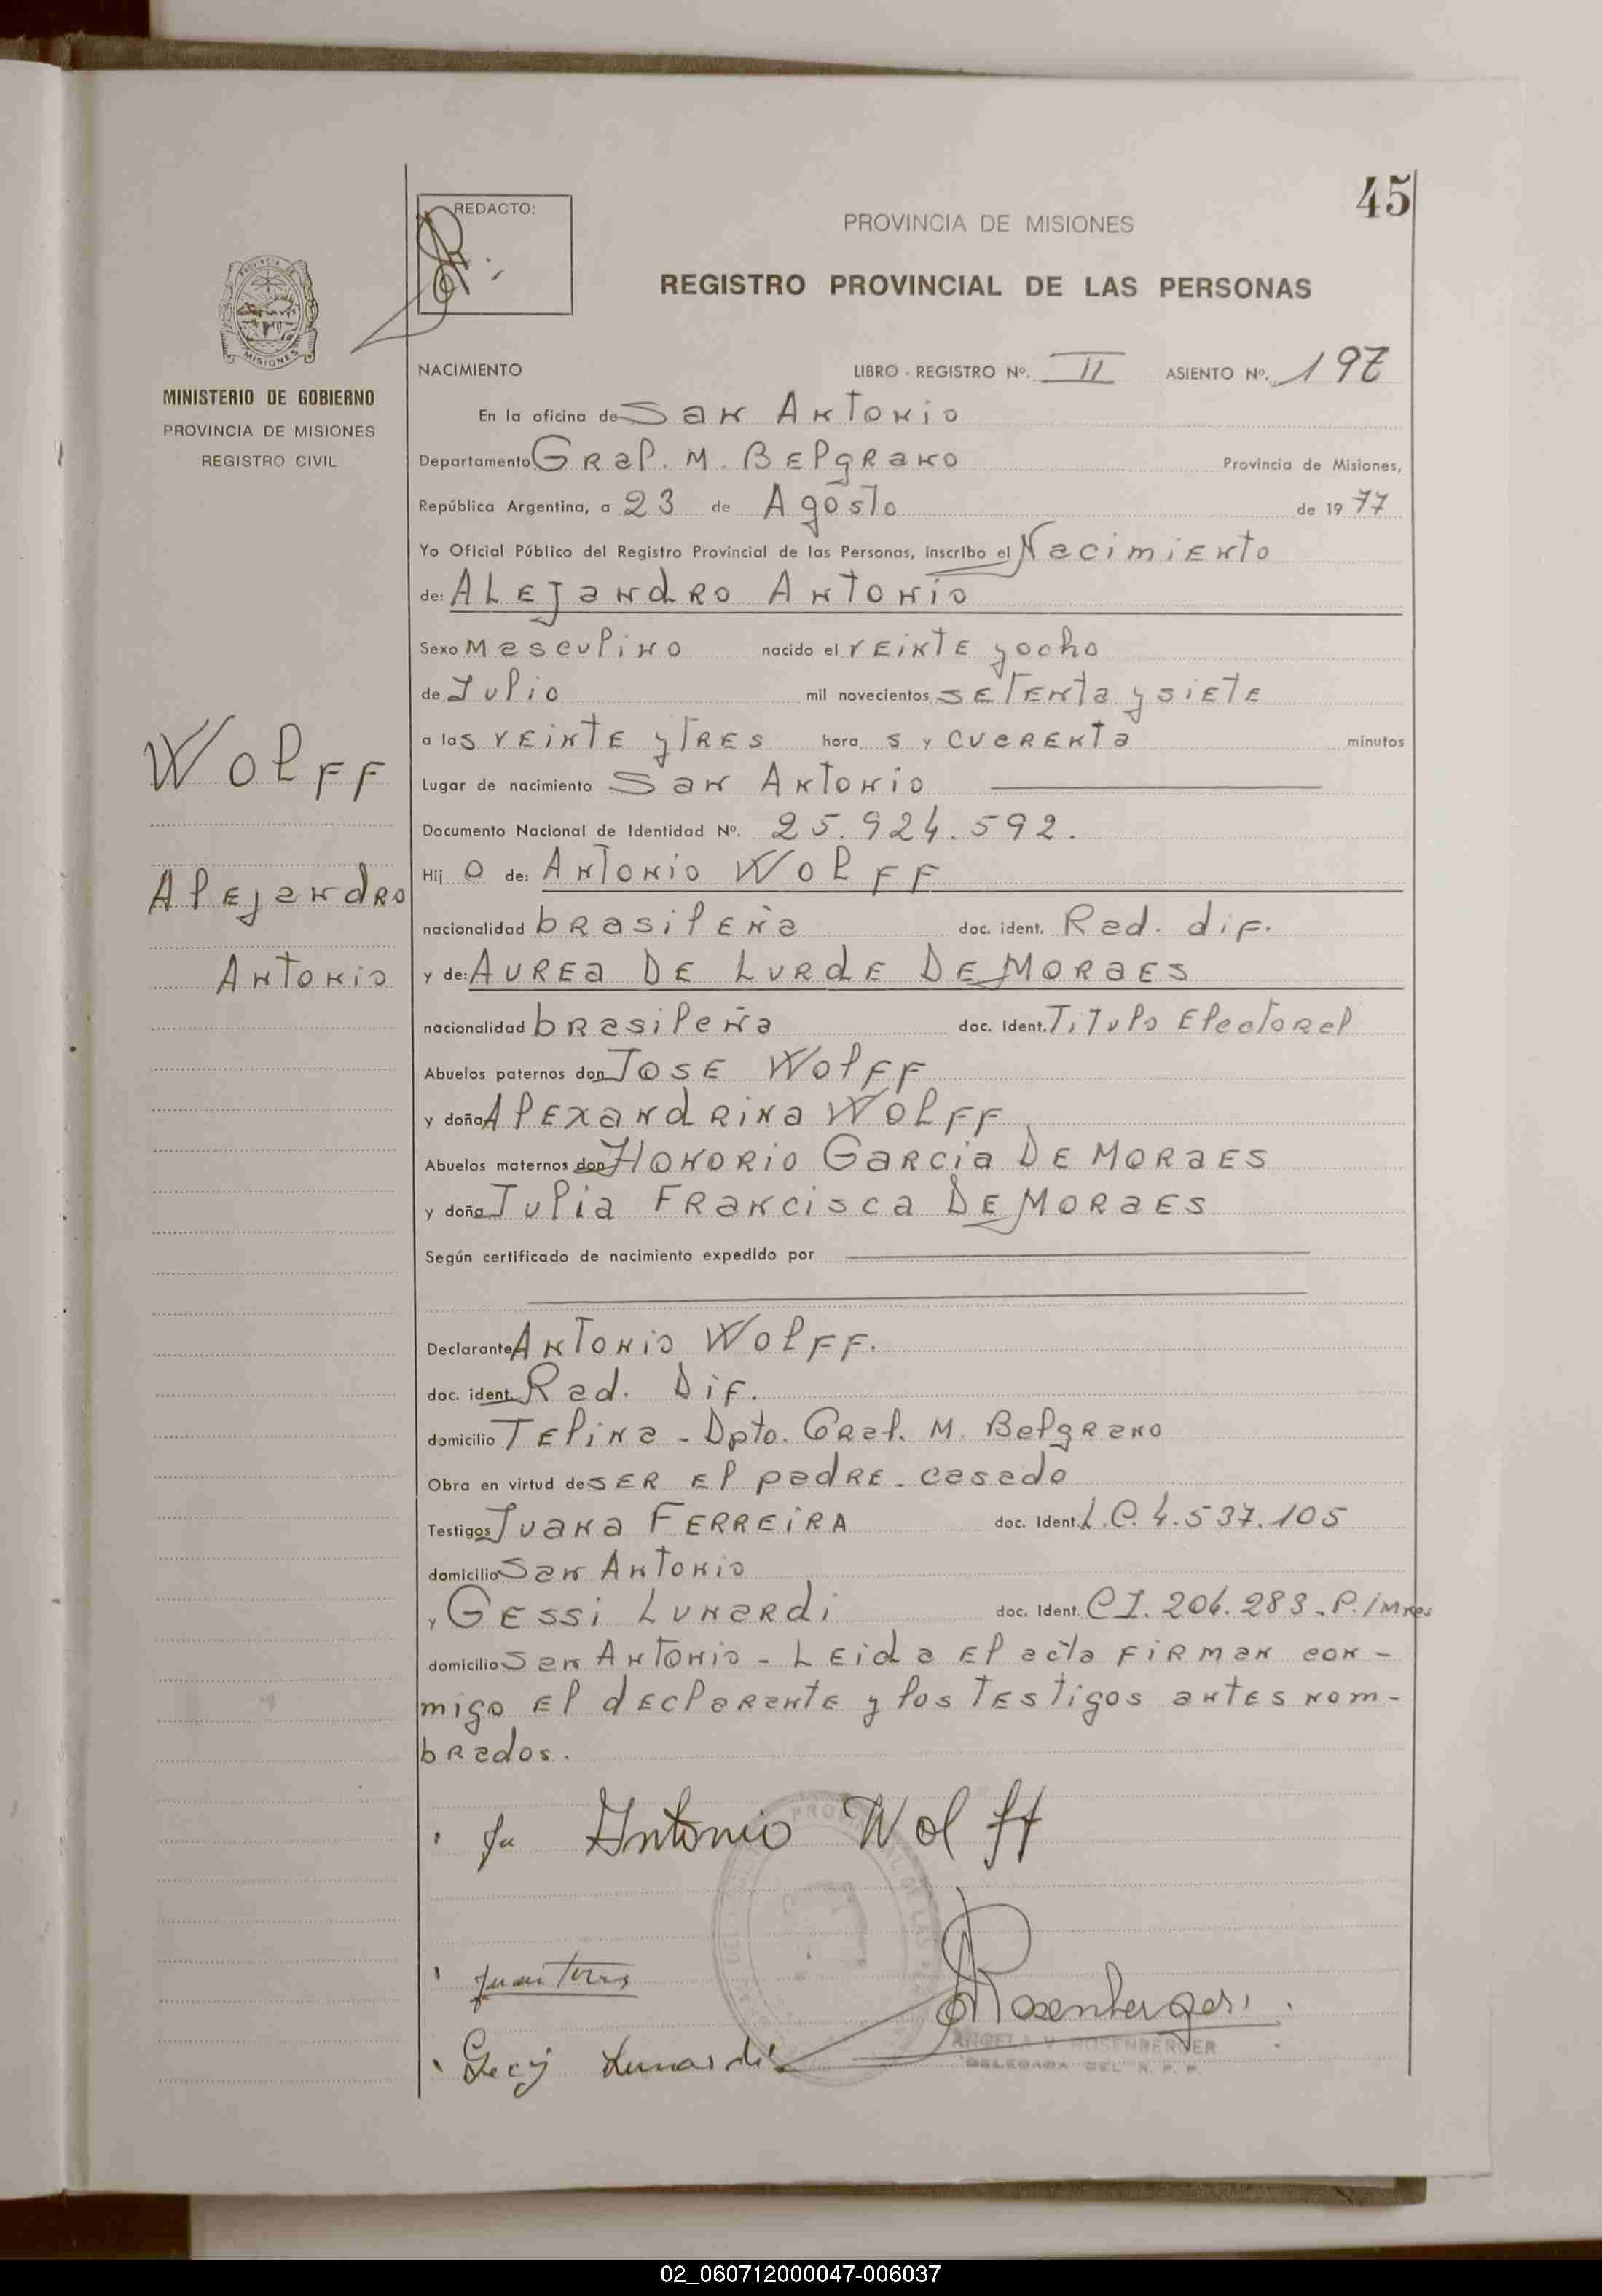 45
REDACTO:
PROVINCIA DE MISIONES
REGISTRO PROVINCIAL DE LAS PERSONAS
MISIONES
MINISTERIO DE GOBIERNO
PROVINCIA DE MISIONES
REGISTRO CIVIL
NACIMIENTO LIBRO - REGISTRO Nº. II ASIENTO Nº. 197
En la oficina de San Antonio
Departamento Gral. M. Belgrano Provincia de Misiones,
República Argentina, a 23 de Agosto de 1977
Yo Oficial Público del Registro Provincial de las Personas, inscribo el Nacimiento
de: ALEJandRO Antonio
Sexo Masculino nacido el VEINTE y ocho
de Julio mil novecientos SETEnta y SIETE
a las VEINTE y TRES hora s y CUARENTA minutos
Wolff
Lugar de nacimiento San Antonio
Documento Nacional de Identidad Nº. 25.924.592.
Alejandro
Hij o de: Antonio Wolff
nacionalidad brasileña doc. ident. Rad. dif.
Antonio
y de: AUREA DE LURDE DE MORAES
nacionalidad brasileña doc. ident. Titulo Electoral
Abuelos paternos don JOSE Wolff
y doña Alexandrina Wolff
Abuelos maternos don Honorio Garcia DE MORAES
y doña Julia Francisca DE MORAES
Según certificado de nacimiento expedido por
Declarante Antonio Wolff.
doc. ident. Rad. Dif.
domicilio Telina - Dpto. Gral. M. Belgrano
Obra en virtud de SER El padRE - casado
Testigos Juana FERREIRA doc. Ident. L.C. 4.537.105
domicilio San Antonio
y Gessi Lunardi doc. Ident. CI. 206.283 - P./Mnes
domicilio San Antonio - Leida el acta firman con-
migo el declarante y los testigos antes nom-
brados.
Antonio Wolff
Rosenberger
Lunardi
ANGELA V. ROSENBERGER
DELEGADA DEL R. P. P.
02_060712000047-006037